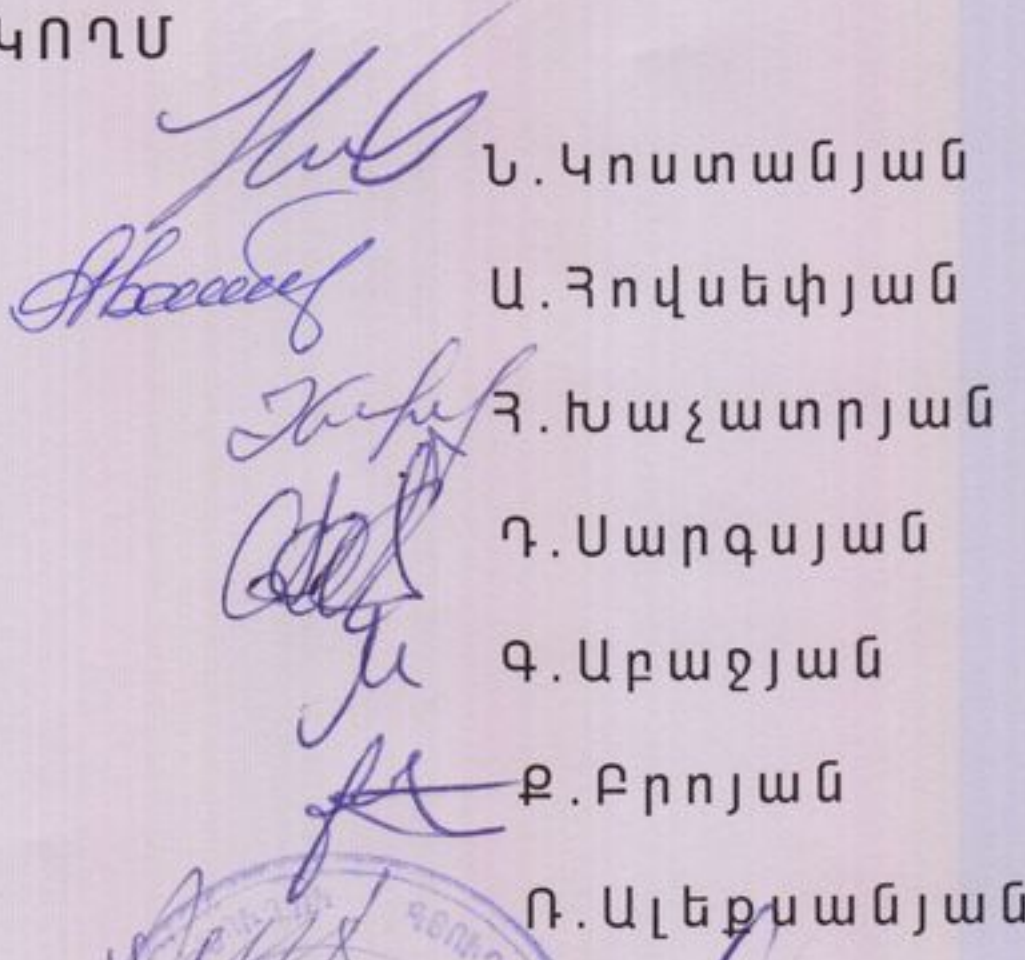 ԿՈՂՄ
Ն.Կոստանյան
Ա.Հովսեփյան
Հ.Խաչատրյան
Դ.Սարգսյան
Գ.Աբաջյան
Ք.Բրոյան
Ռ.Ալեքսանյան